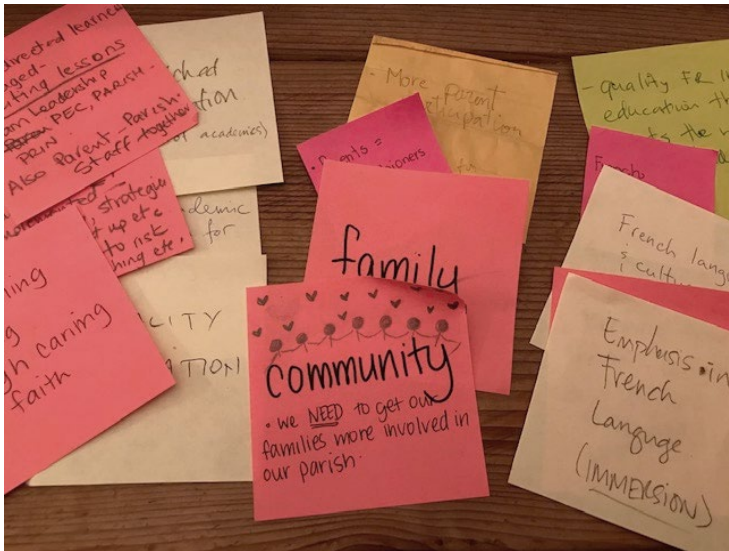 directed learne
aged-
ting lessons
om Leadership
PEC, PARISH-
PRIN
Also Parent-Parish-
Staff together
strategie
t up etc
to risk
thing etc.
ched
tion
academics)
demic
for
LITY
ATION
ing
g
gh caring
faith
- More parent
cupation
• ents =
ioners
family
community
• we NEED to get our
families more involved in
our parish.
- quality FR I
education th
ts the
French
French lang
& cultu
Emphasis in
French
Languge
(IMMERSION)